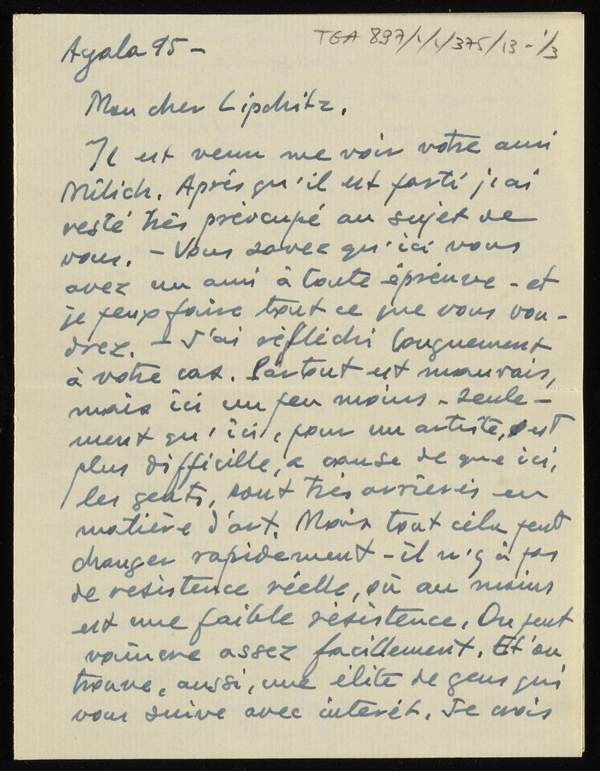 TGA 897/1/1/375/13-1/3
Ayala 95 -
Mon cher Lipchitz,
Il est venu me voir votre ami
Milich. Aprés qu'il est parti j'ai
resté trés préocupé au sujet de
vous. - Vous savez qu'ici vous
avez un ami à toute épreuve - et
je peux faire tout ce que vous vou-
drez. - J'ai réfléchi longuement
à votre cas. Partout est mauvais,
mais ici un peu moins - seule-
ment qu'ici, pour un artiste, est
plus difficille, a cause de que ici,
les gents, sont trés arrierés en
matière d'art. Mais tout céla peut
changer rapidement - il n'y à pas
de resistence réelle, où au moins
est une faible résistence. On peut
vaincre assez facillement. Et on
trouve, aussi, une élite de gens qui
vous suive avec interét. Je crois